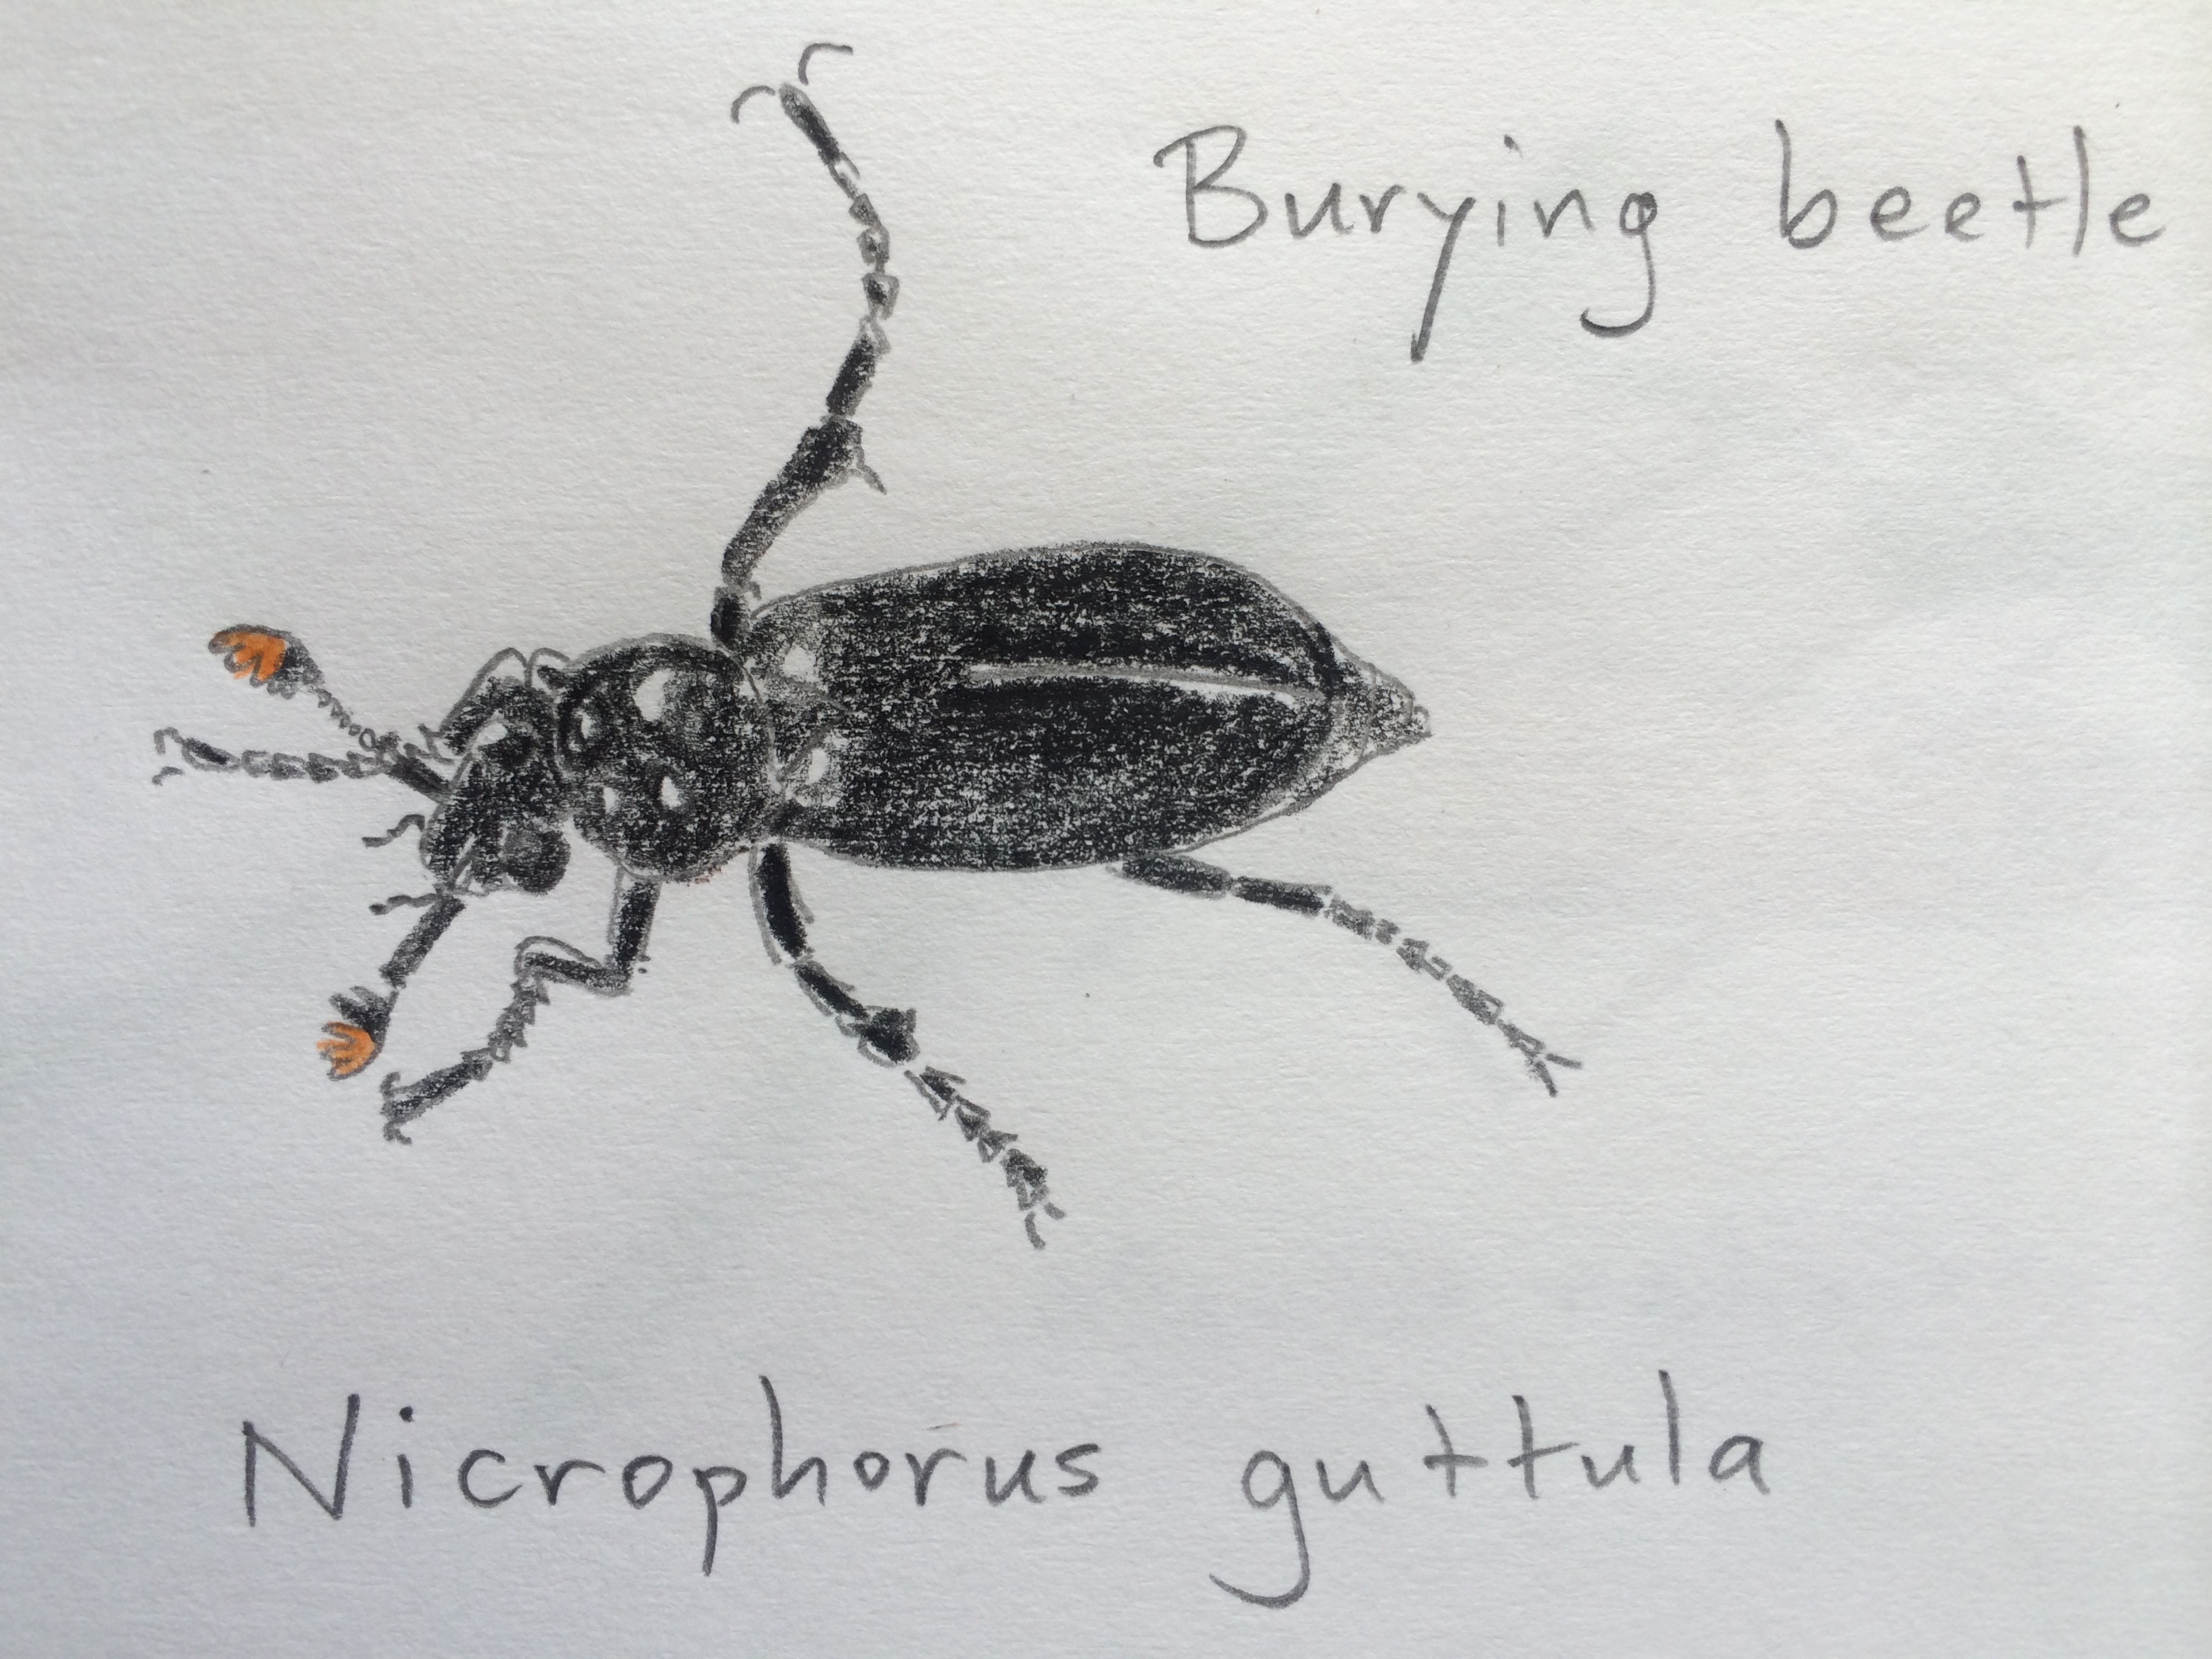 Burying beetle
Nicrophorus guttula